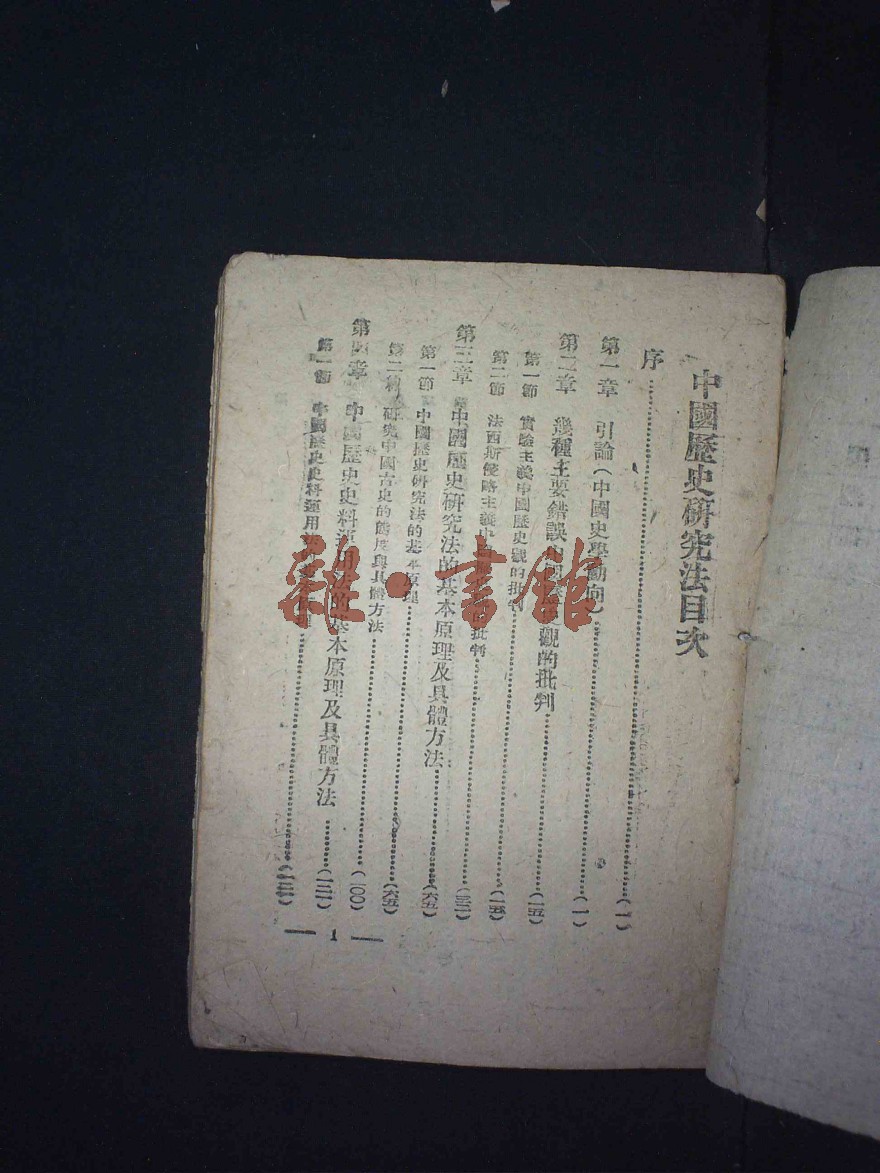 中國歷史研究法目次
序(一)
第一章 引論(中國史學動向)(一)
第二章 幾種主要錯誤 觀的批判(一五)
第一節 實驗主義中國歷史觀的批判(一五)
第二節 法西斯侵略主義中 批判(三二)
第三章 中國歷史研究法的基本原理及具體方法(六五)
第一節 中國歷史研究法的基本原理(六五)
第二節 研究中國古史的態度與具體方法(一〇〇)
第四章 中國歷史史料運用法的基本原理及具體方法(一二一)
第一節 中國歷史史料運用 原理
1
雜·書館